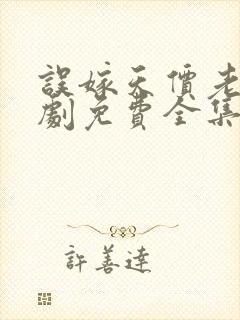 誤嫁天價老
劇免費全集
許善達